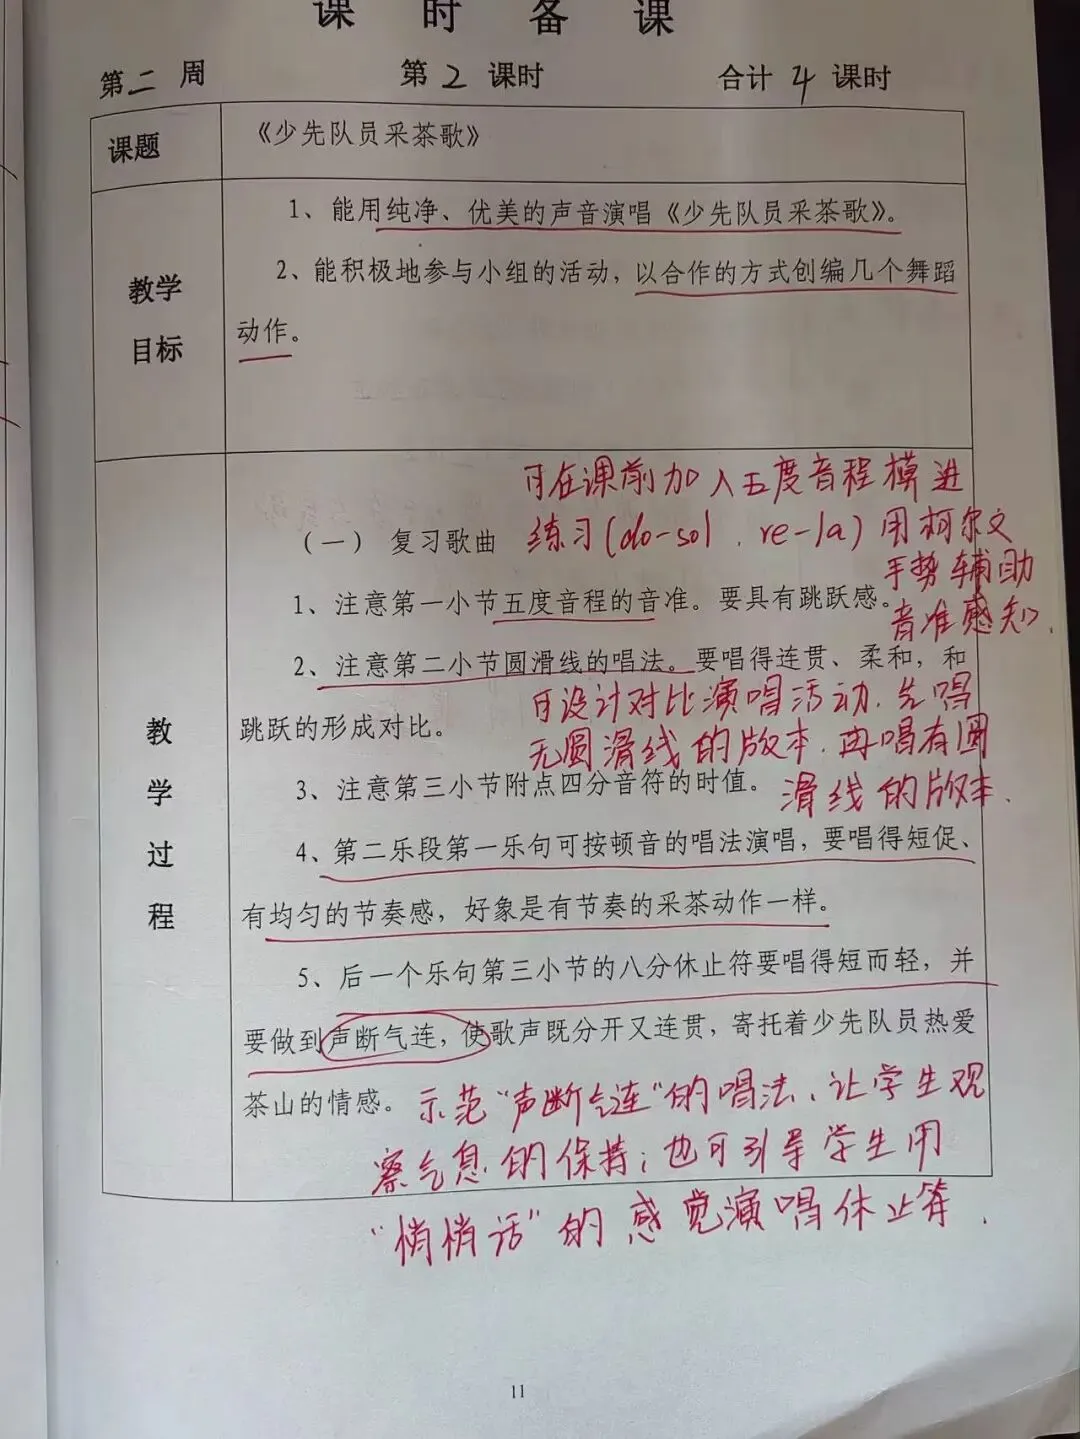 课时备课
第二周 第2课时 合计4课时
课题 《少先队员采茶歌》
1、能用纯净、优美的声音演唱《少先队员采茶歌》。
2、能积极地参与小组的活动，以合作的方式创编几个舞蹈
教学
目标
动作。
可在课前加入五度音程模进
（一） 复习歌曲 练习(do-sol、re-la)用柯尔文
手势辅助
1、注意第一小节五度音程的音准。要具有跳跃感。
音准感知.
2、注意第二小节圆滑线的唱法。要唱得连贯、柔和，和
可设计对比演唱活动.先唱
跳跃的形成对比。
无圆滑线的版本.再唱有圆
3、注意第三小节附点四分音符的时值。 滑线的版本.
教
学
过
程
4、第二乐段第一乐句可按顿音的唱法演唱，要唱得短促、
有均匀的节奏感，好象是有节奏的采茶动作一样。
5、后一个乐句第三小节的八分休止符要唱得短而轻，并
要做到声断气连，使歌声既分开又连贯，寄托着少先队员热爱
茶山的情感。 示范"声断气连"的唱法、让学生观
察气息的保持；也可引导学生用
"悄悄话"的感觉演唱休止符.
11